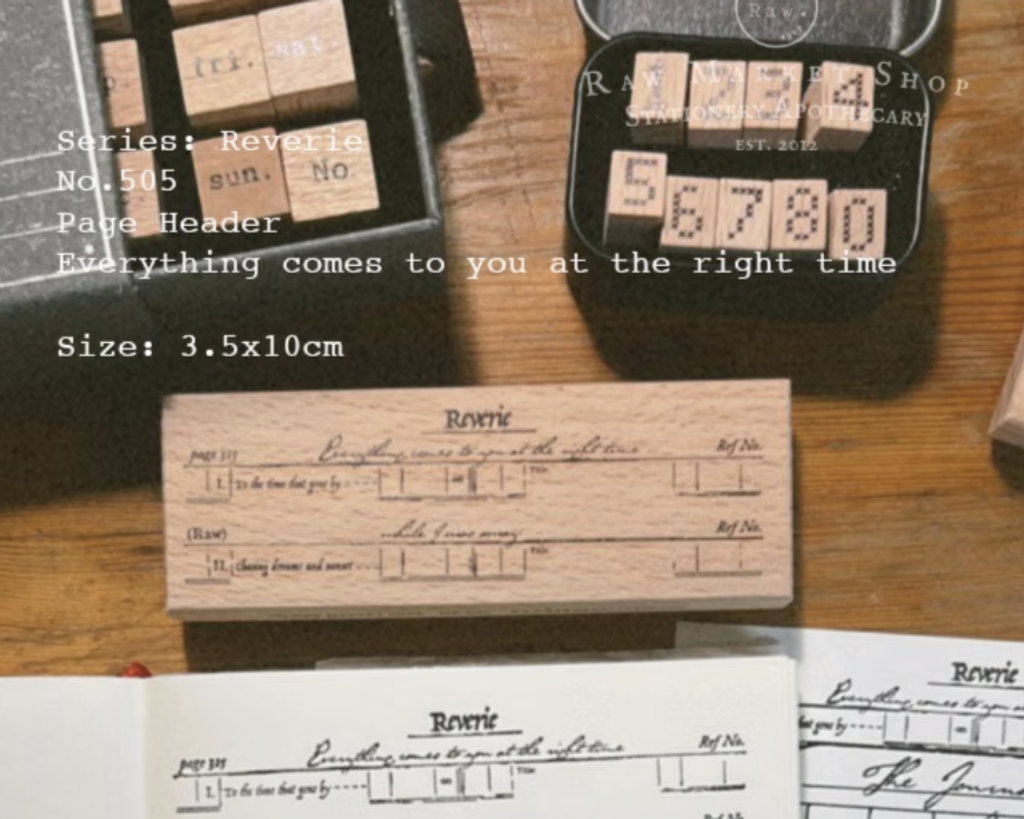 Raw.
RAW MARKET SHOP
STATIONERY APOTHECARY
EST. 2012
fri. sat.
sun. No
1 2 3 4
5 6 7 8 0
Series: Reverie
No.505
Page Header
Everything comes to you at the right time
Size: 3.5x10cm
Reverie
page 325 Everything comes to you at the right time Ref No.
I. To the time that goes by ----- Title
(Raw) while I was away Ref No.
II. Chasing dreams and sunset --- Title
Reverie
page 325 Everything comes to you at the right time Ref No.
I. To the time that goes by ----- Title
Ref No.
Reverie
Everything comes to you at
that goes by -----
The Journ